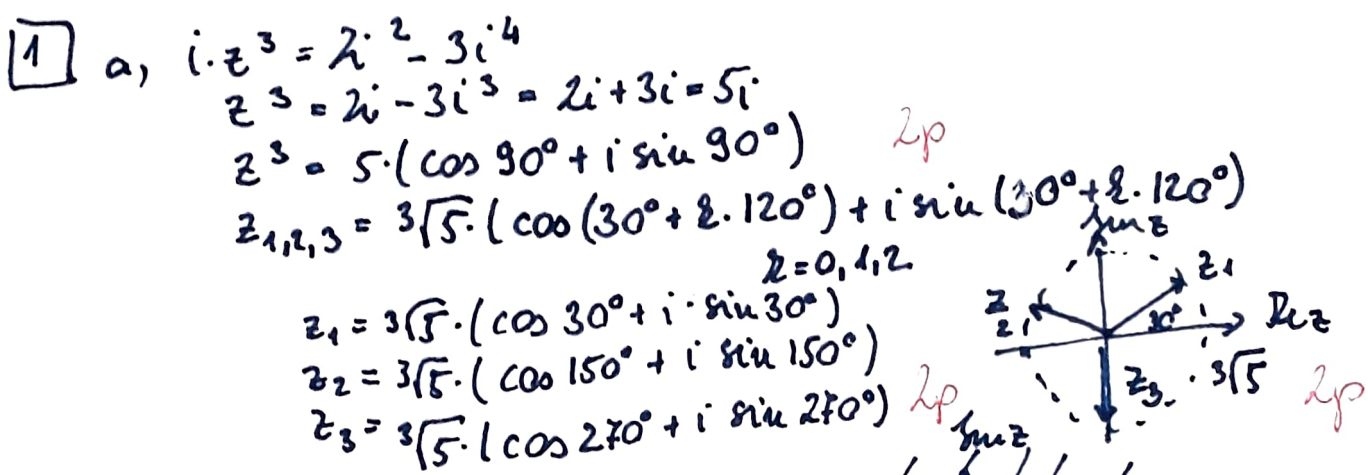 1 a, i·z³ = 2i² - 3i⁴
z³ = 2i - 3i³ = 2i + 3i = 5i
z³ = 5·(cos 90° + i sin 90°) 2p
z₁,₂,₃ = ³√5·(cos(30° + k·120°) + i sin(30° + k·120°)
k = 0, 1, 2.
Im z
z₁
z₂
30°
Re z
z₁ = ³√5·(cos 30° + i·sin 30°)
z₂ = ³√5·(cos 150° + i sin 150°)
z₃ = ³√5·(cos 270° + i sin 270°) 2p
z₃
³√5
2p
Im z